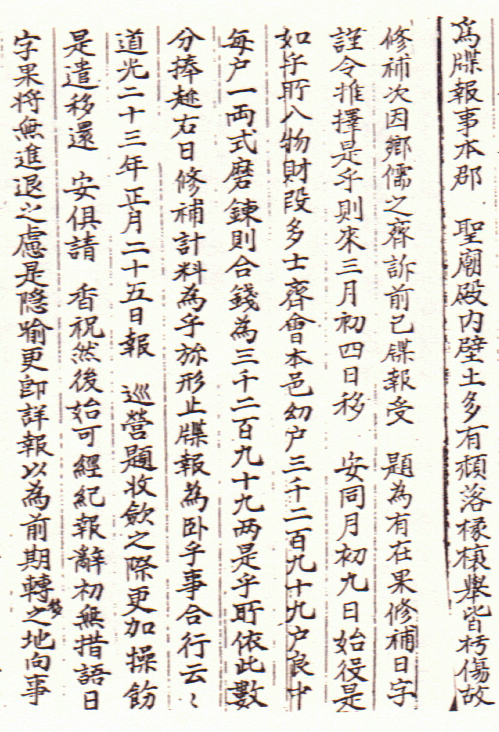 為牒報事本郡 聖廟殿內壁土多有頹落椽榱擧皆朽傷故
修補次因鄉儒之齊訴前已牒報受 題為有在果修補日字
謹令推擇是乎則來三月初四日移 安同月初九日始役是
如乎所入物財段多士齊會本邑幼户三千二百九十九户良中
每户一両式磨鍊則合錢為三千二百九十九两是乎所依此數
分捧趂右日修補計料為乎旀形止牒報為卧乎事合行云〻
道光二十三年正月二十五日報 巡營題收斂之際更加操飭
是遣移還 安俱請 香祝然後始可經紀報辭初無措語日
字果將無進退之慮是隱喩更卽詳報以為前期轉之地向事